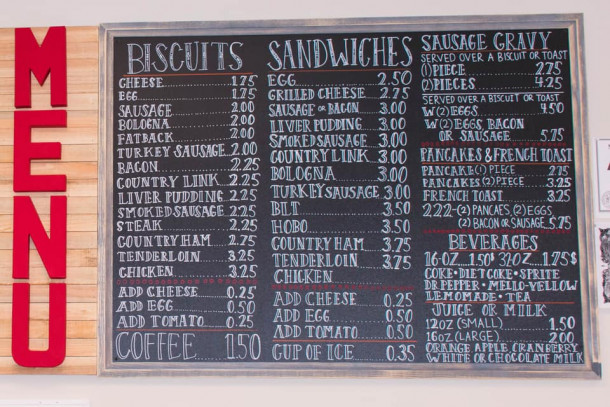 MENU
BISCUITS
CHEESE 1.75
EGG 1.75
SAUSAGE 2.00
BOLOGNA 2.00
FATBACK 2.00
TURKEY SAUSAGE 2.00
BACON 2.25
COUNTRY LINK 2.25
LIVER PUDDING 2.25
SMOKED SAUSAGE 2.25
STEAK 2.25
COUNTRY HAM 2.75
TENDERLOIN 3.25
CHICKEN 3.25
ADD CHEESE 0.25
ADD EGG 0.50
ADD TOMATO 0.25
COFFEE 1.50
SANDWICHES
EGG 2.50
GRILLED CHEESE 2.75
SAUSAGE OR BACON 3.00
LIVER PUDDING 3.00
SMOKED SAUSAGE 3.00
COUNTRY LINK 3.00
BOLOGNA 3.00
TURKEY SAUSAGE 3.00
BLT 3.50
HOBO 3.50
COUNTRY HAM 3.75
TENDERLOIN 3.75
CHICKEN
ADD CHEESE 0.25
ADD EGG 0.50
ADD TOMATO 0.50
CUP OF ICE 0.35
SAUSAGE GRAVY
SERVED OVER A BISCUIT OR TOAST
(1) PIECE 2.75
(2) PIECES 4.25
SERVED OVER A BISCUIT OR TOAST
W (2) EGGS 4.50
W (2) EGGS, BACON
OR SAUSAGE 5.75
PANCAKES & FRENCH TOAST
PANCAKE (1) PIECE 2.75
PANCAKES (2) PIECE 3.25
FRENCH TOAST 3.25
222-(2) PANCAES, (2) EGGS
(2) BACON OR SAUSAGE 5.75
BEVERAGES
16 OZ 1.50 32 OZ 1.75$
COKE • DIET COKE • SPRITE
DR PEPPER • MELLO-YELLOW
LEMOMADE • TEA
JUICE OR MILK
12OZ (SMALL) 1.50
16OZ (LARGE) 2.00
ORANGE APPLE CRANBERRY
WHITE OR CHOCOLATE MILK